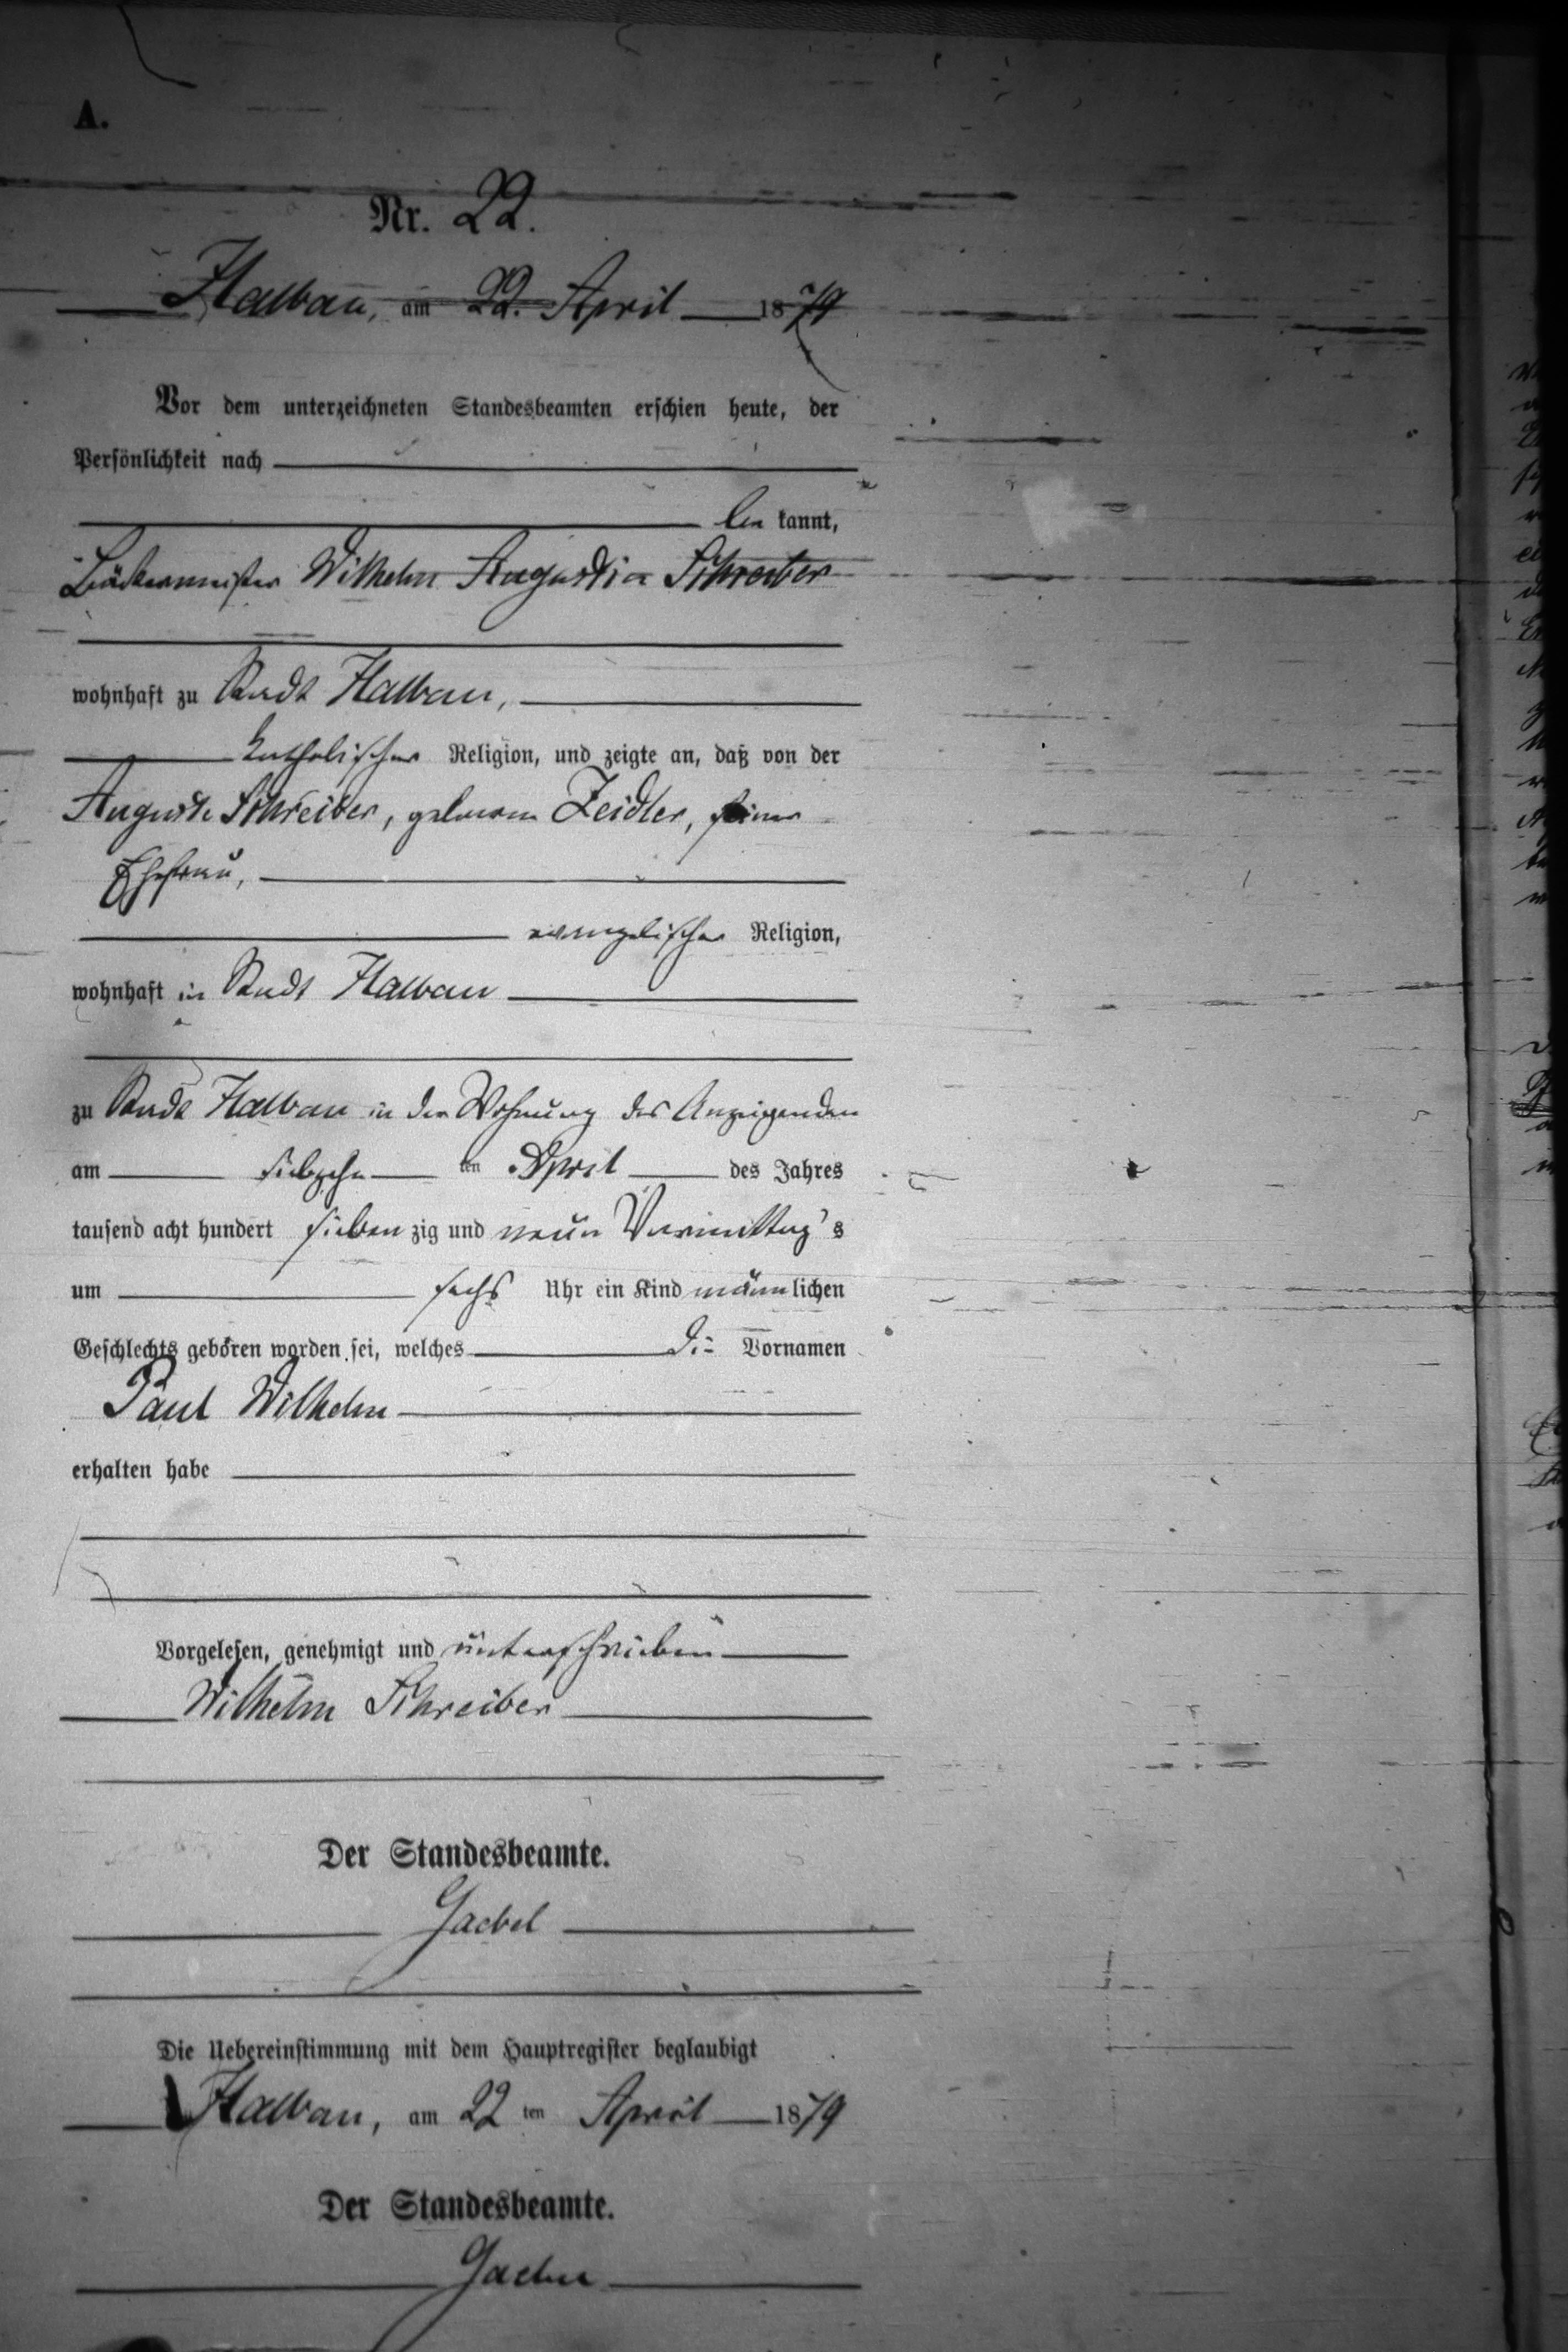 A.
Nr. 22.
Halbau, am 22. April 1879
Vor dem unterzeichneten Standesbeamten erschien heute, der
Persönlichkeit nach
be kannt,
Bäckermeister Wilhelm Augustin Schreiber
wohnhaft zu Stadt Halbau,
katholischer Religion, und zeigte an, daß von der
Auguste Schreiber, geborene Zeidler, seiner
Ehefrau,
evangelischer Religion,
wohnhaft in Stadt Halbau
zu Stadt Halbau in der Wohnung des Anzeigenden
am siebzehn ten April des Jahres
tausend acht hundert sieben zig und neun Vormittag's
um sechs Uhr ein Kind männlichen
Geschlechts geboren worden sei, welches die Vornamen
Paul Wilhelm
erhalten habe
Vorgelesen, genehmigt und unterschrieben
Wilhelm Schreiber
Der Standesbeamte.
Gaebel
Die Uebereinstimmung mit dem Hauptregister beglaubigt
Halbau, am 22 ten April 1879
Der Standesbeamte.
Gaebel